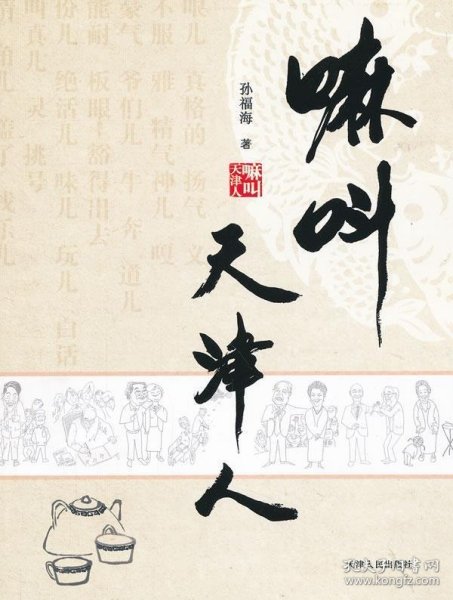 嘛叫
天津人
孙福海 著
嘛叫
天津人
眼儿 真格的 扬气 义
不服
豪气 爷们儿
能耐 板眼 豁得出去
份儿 绝活儿 味儿 玩儿 白话
叫真儿 灵 挑号
天津人民出版社
孔夫子旧书网
www.kongfz.com